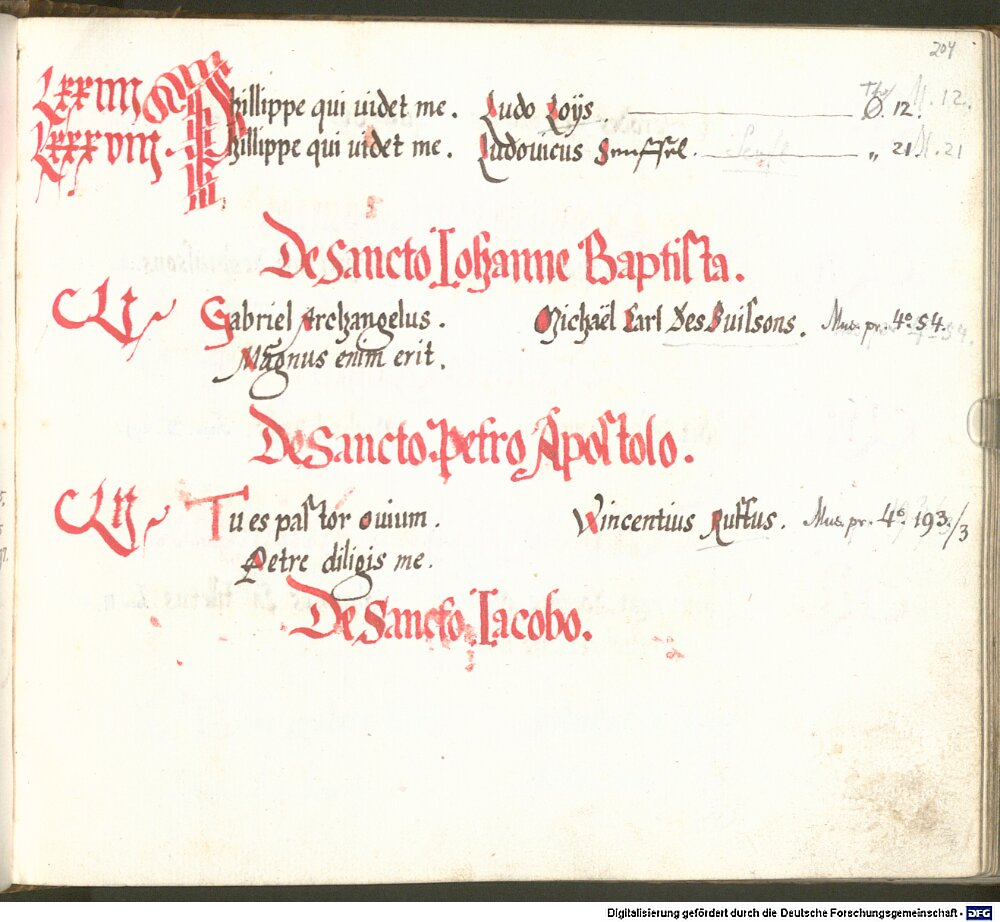 204
LXXIIII Phillippe qui uidet me. Ludo Loÿs. 12. M. 12.
LXXXVIII. Phillippe qui uidet me. Ludouicus Senfſel. Senfl „ 21 M. 21
De Sancto Iohanne Baptiſta.
CLI Gabriel Archangelus. Michaël Carl Des Buiſsons. Mus. pr. 4º 54.
Magnus enim erit.
De Sancto Petro Apoſtolo.
Tu es paſtor ouium. Vincentius Ruffus. Mus. pr. 4º. 193/3
Petre diligis me.
De Sancto Iacobo.
Digitalisierung gefördert durch die Deutsche Forschungsgemeinschaft - DFG